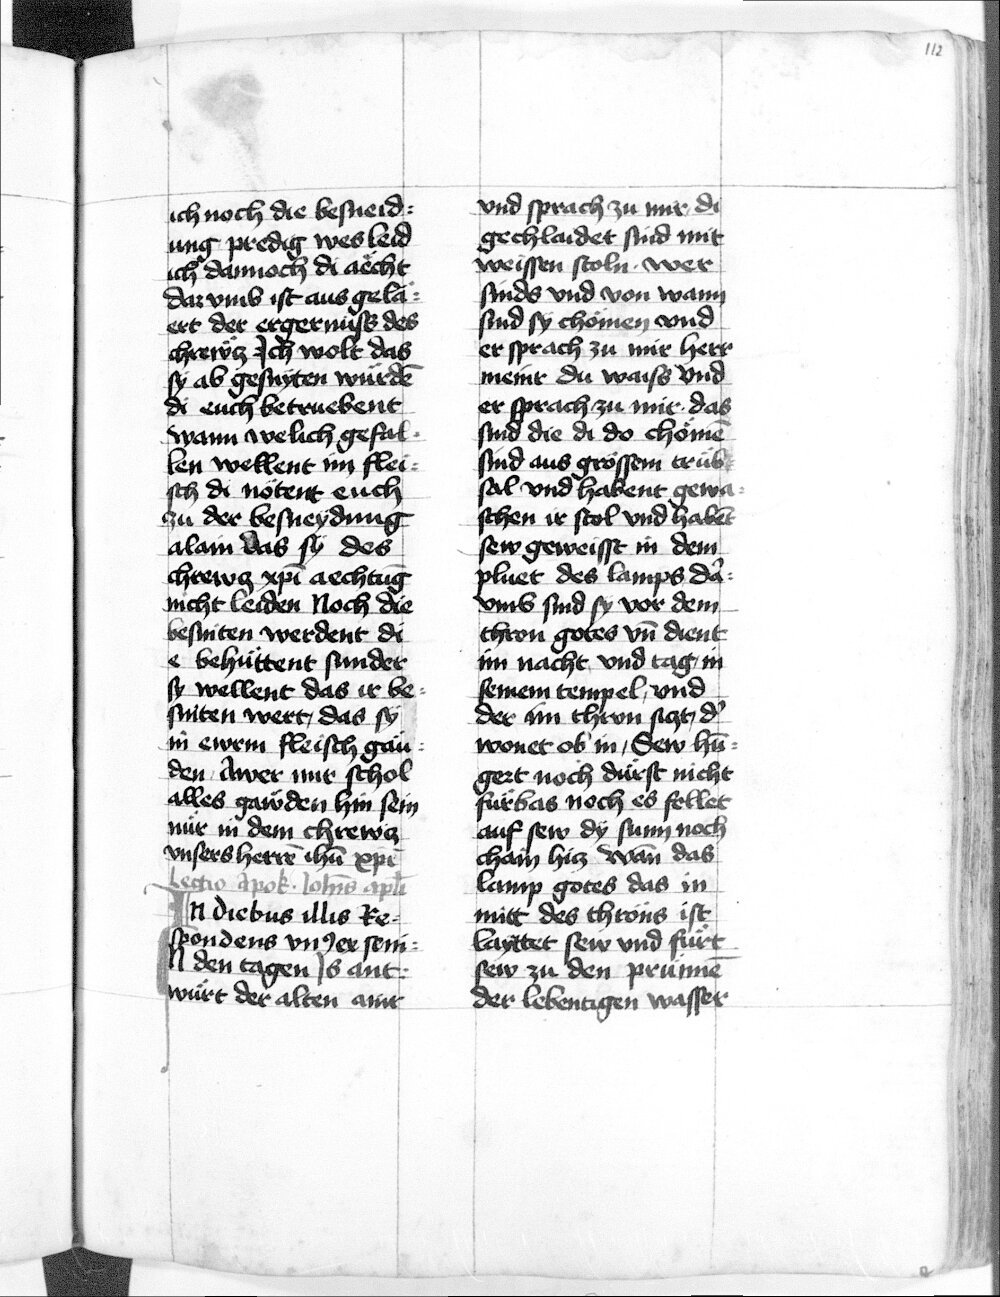 112
ich noch die besneid=
ung predig wes leid
ich dannoch di aͤcht
dar vmb ist aus gelaͤ=
ert der ergernuͤss des
chrewtz Ich wolt das
sy ab gesnyten wuͤrdē
di euch betruebent
wann welich gefal=
len wellent im flei=
sch di nötent euch
zu der besneydung
alain das sy des
chrewtz xp̄i aechtūg
nicht leiden Noch die
besniten werdent di
e behuͤttent sunder
sy wellent das ir be=
sniten wert / das sy
in ewrm fleisch gau=
den / Awer mir schol
alles gawden hin sein
nuͤr in dem chrewtz
vnsers herrē ihū xp̄i
Lectio Apok. Joh̄is ap̄li
IN diebus illis Re=
spondens vn9 ex seni=
N den tagen Is ant=
wuͤrt der alten ainr
vnd sprach zu mir / di
gechlaidet sind mit
weissen stoln. wer
sinds vnd von wann
sind sy chömen vnd
er sprach zu mir herr
meinr du waiss vnd
er sprach zu mir. das
sind die di do chömē
sind aus grössem truͤb
sal vnd habent gewa=
schen ir stol vnd habēt
sew geweisst in dem
pluet des lamps da=
vmb sind sy vor dem
thron gotes vn̄ dient
im nacht vnd tag / in
seinem tempel / vnd
der im thron sitzt / d'
wonet ob in / Sew hū=
gert noch duͤrst nicht
fuͤrbas noch es fellet
auf sew dy sunn noch
chain hitz wān das
lamp gotes das in
mitt des throns ist
layttet sew vnd fuͤrt
sew zu den pruͤnnē
der lebentigen wasser